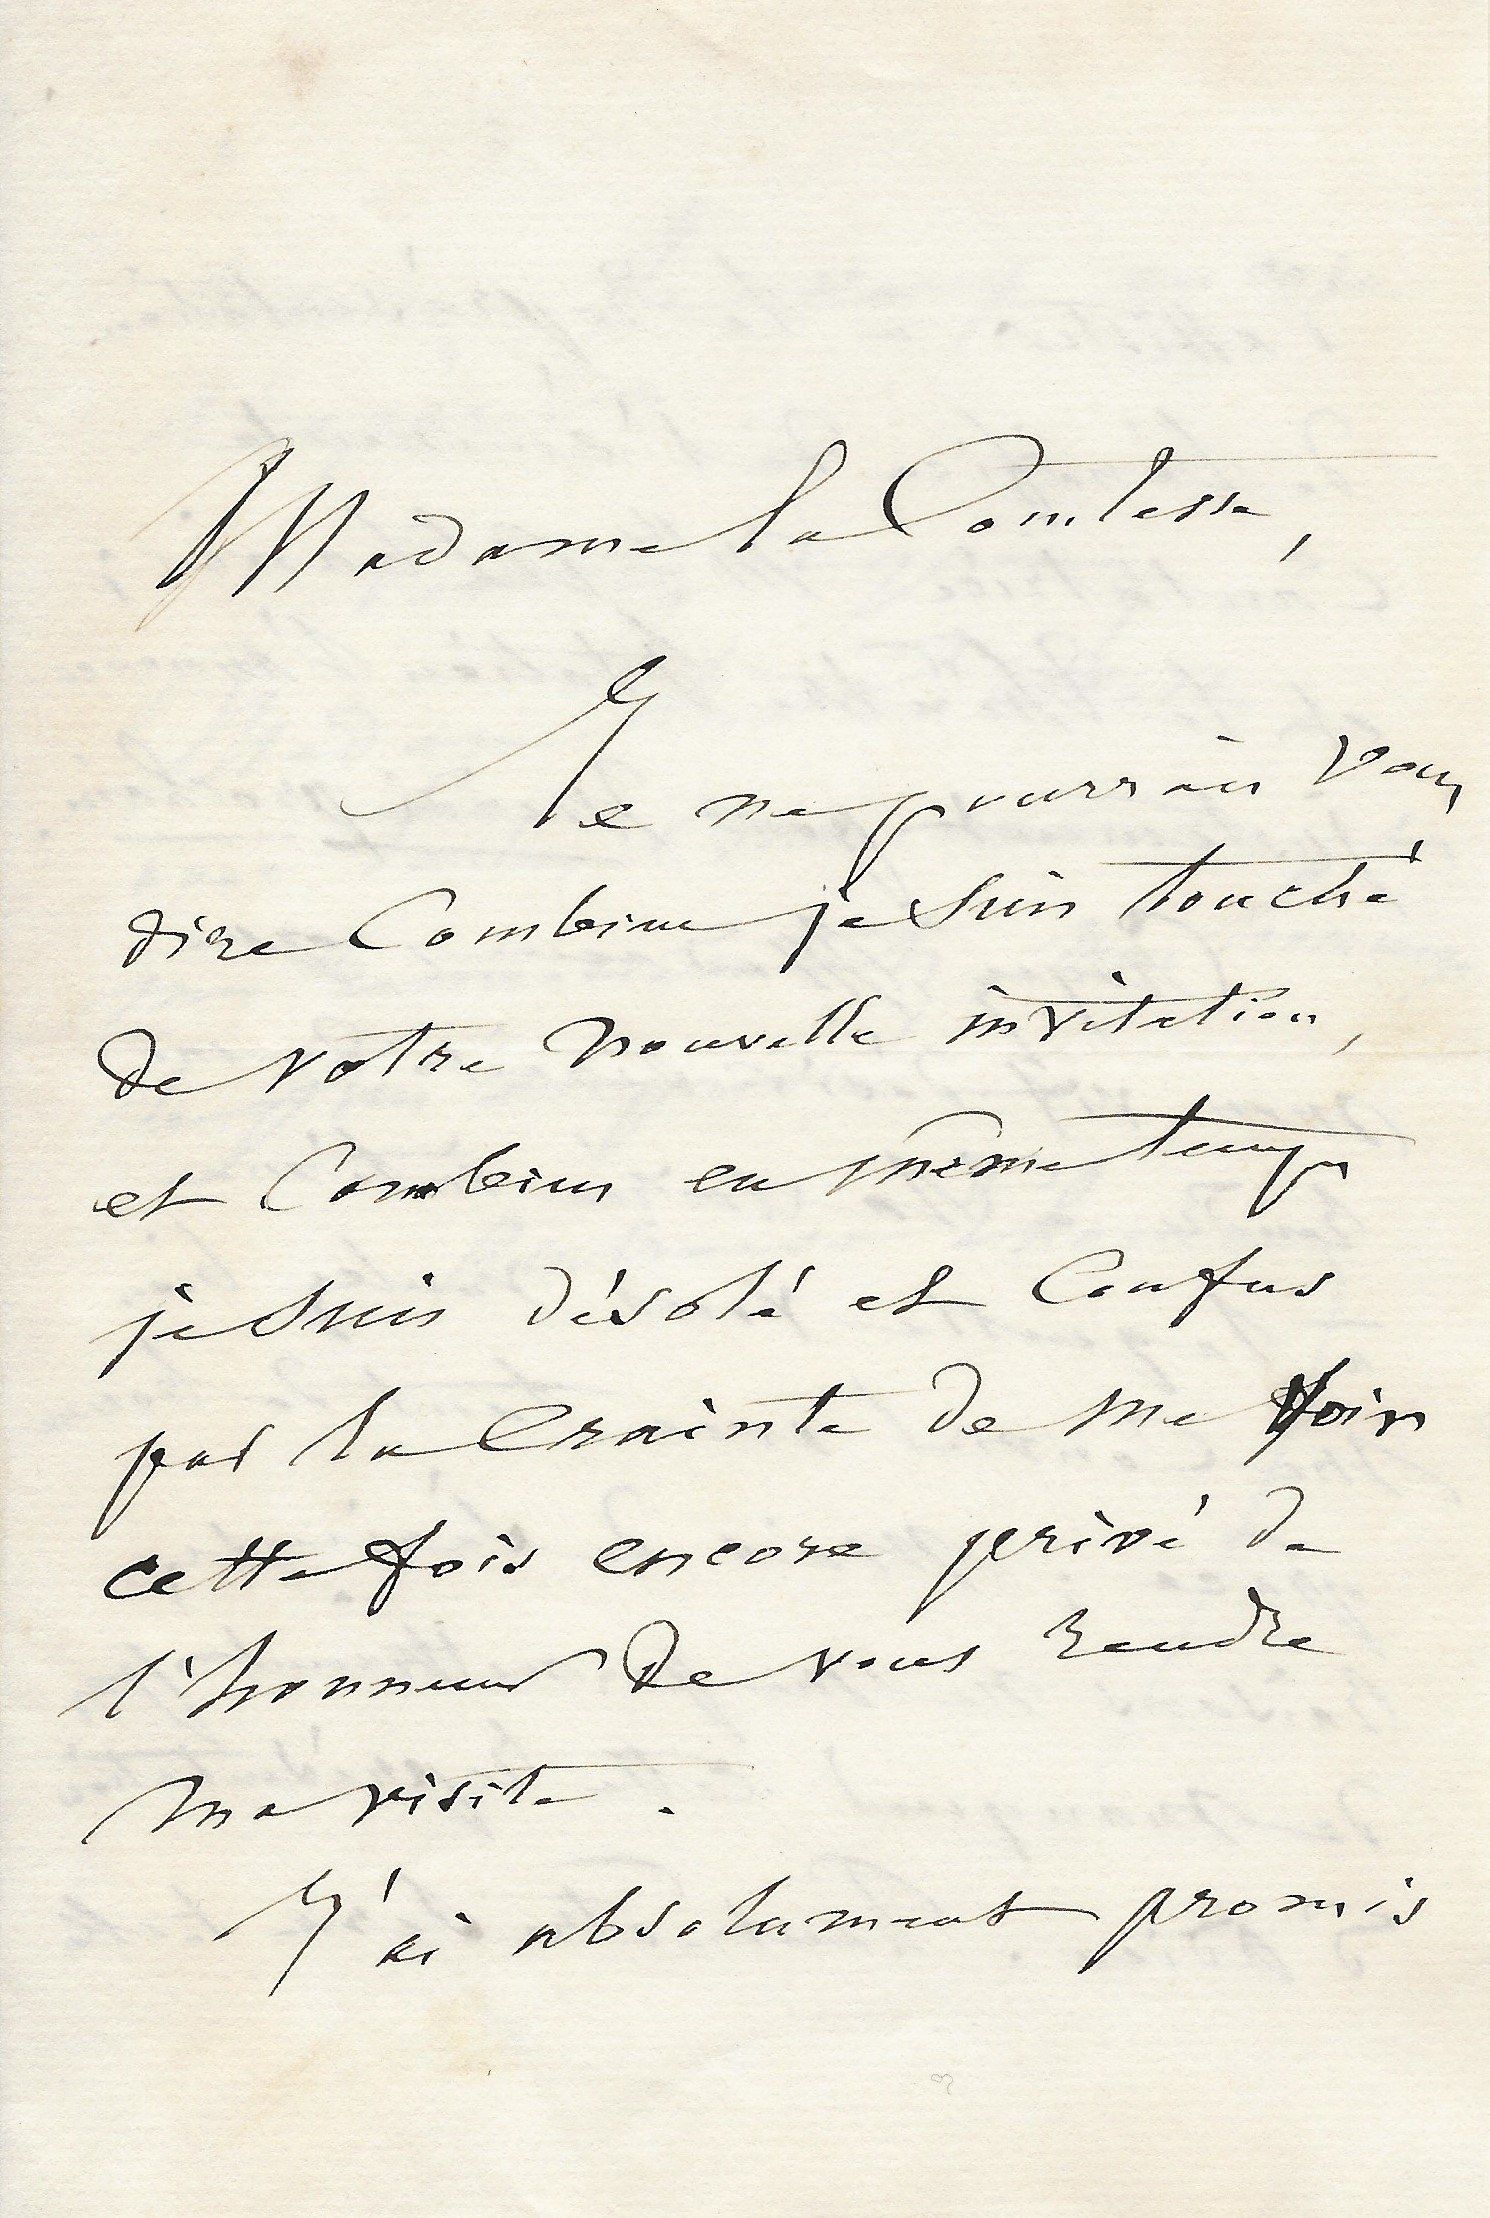 Madame la Comtesse,
Je ne pourrais vous
dire Combien je suis touché
de votre nouvelle invitation,
et Combien en même temps
je suis désolé et Confus
par la Crainte de me voir
cette fois encore privé de
l'honneur de vous rendre
ma visite.
J'ai absolument promis